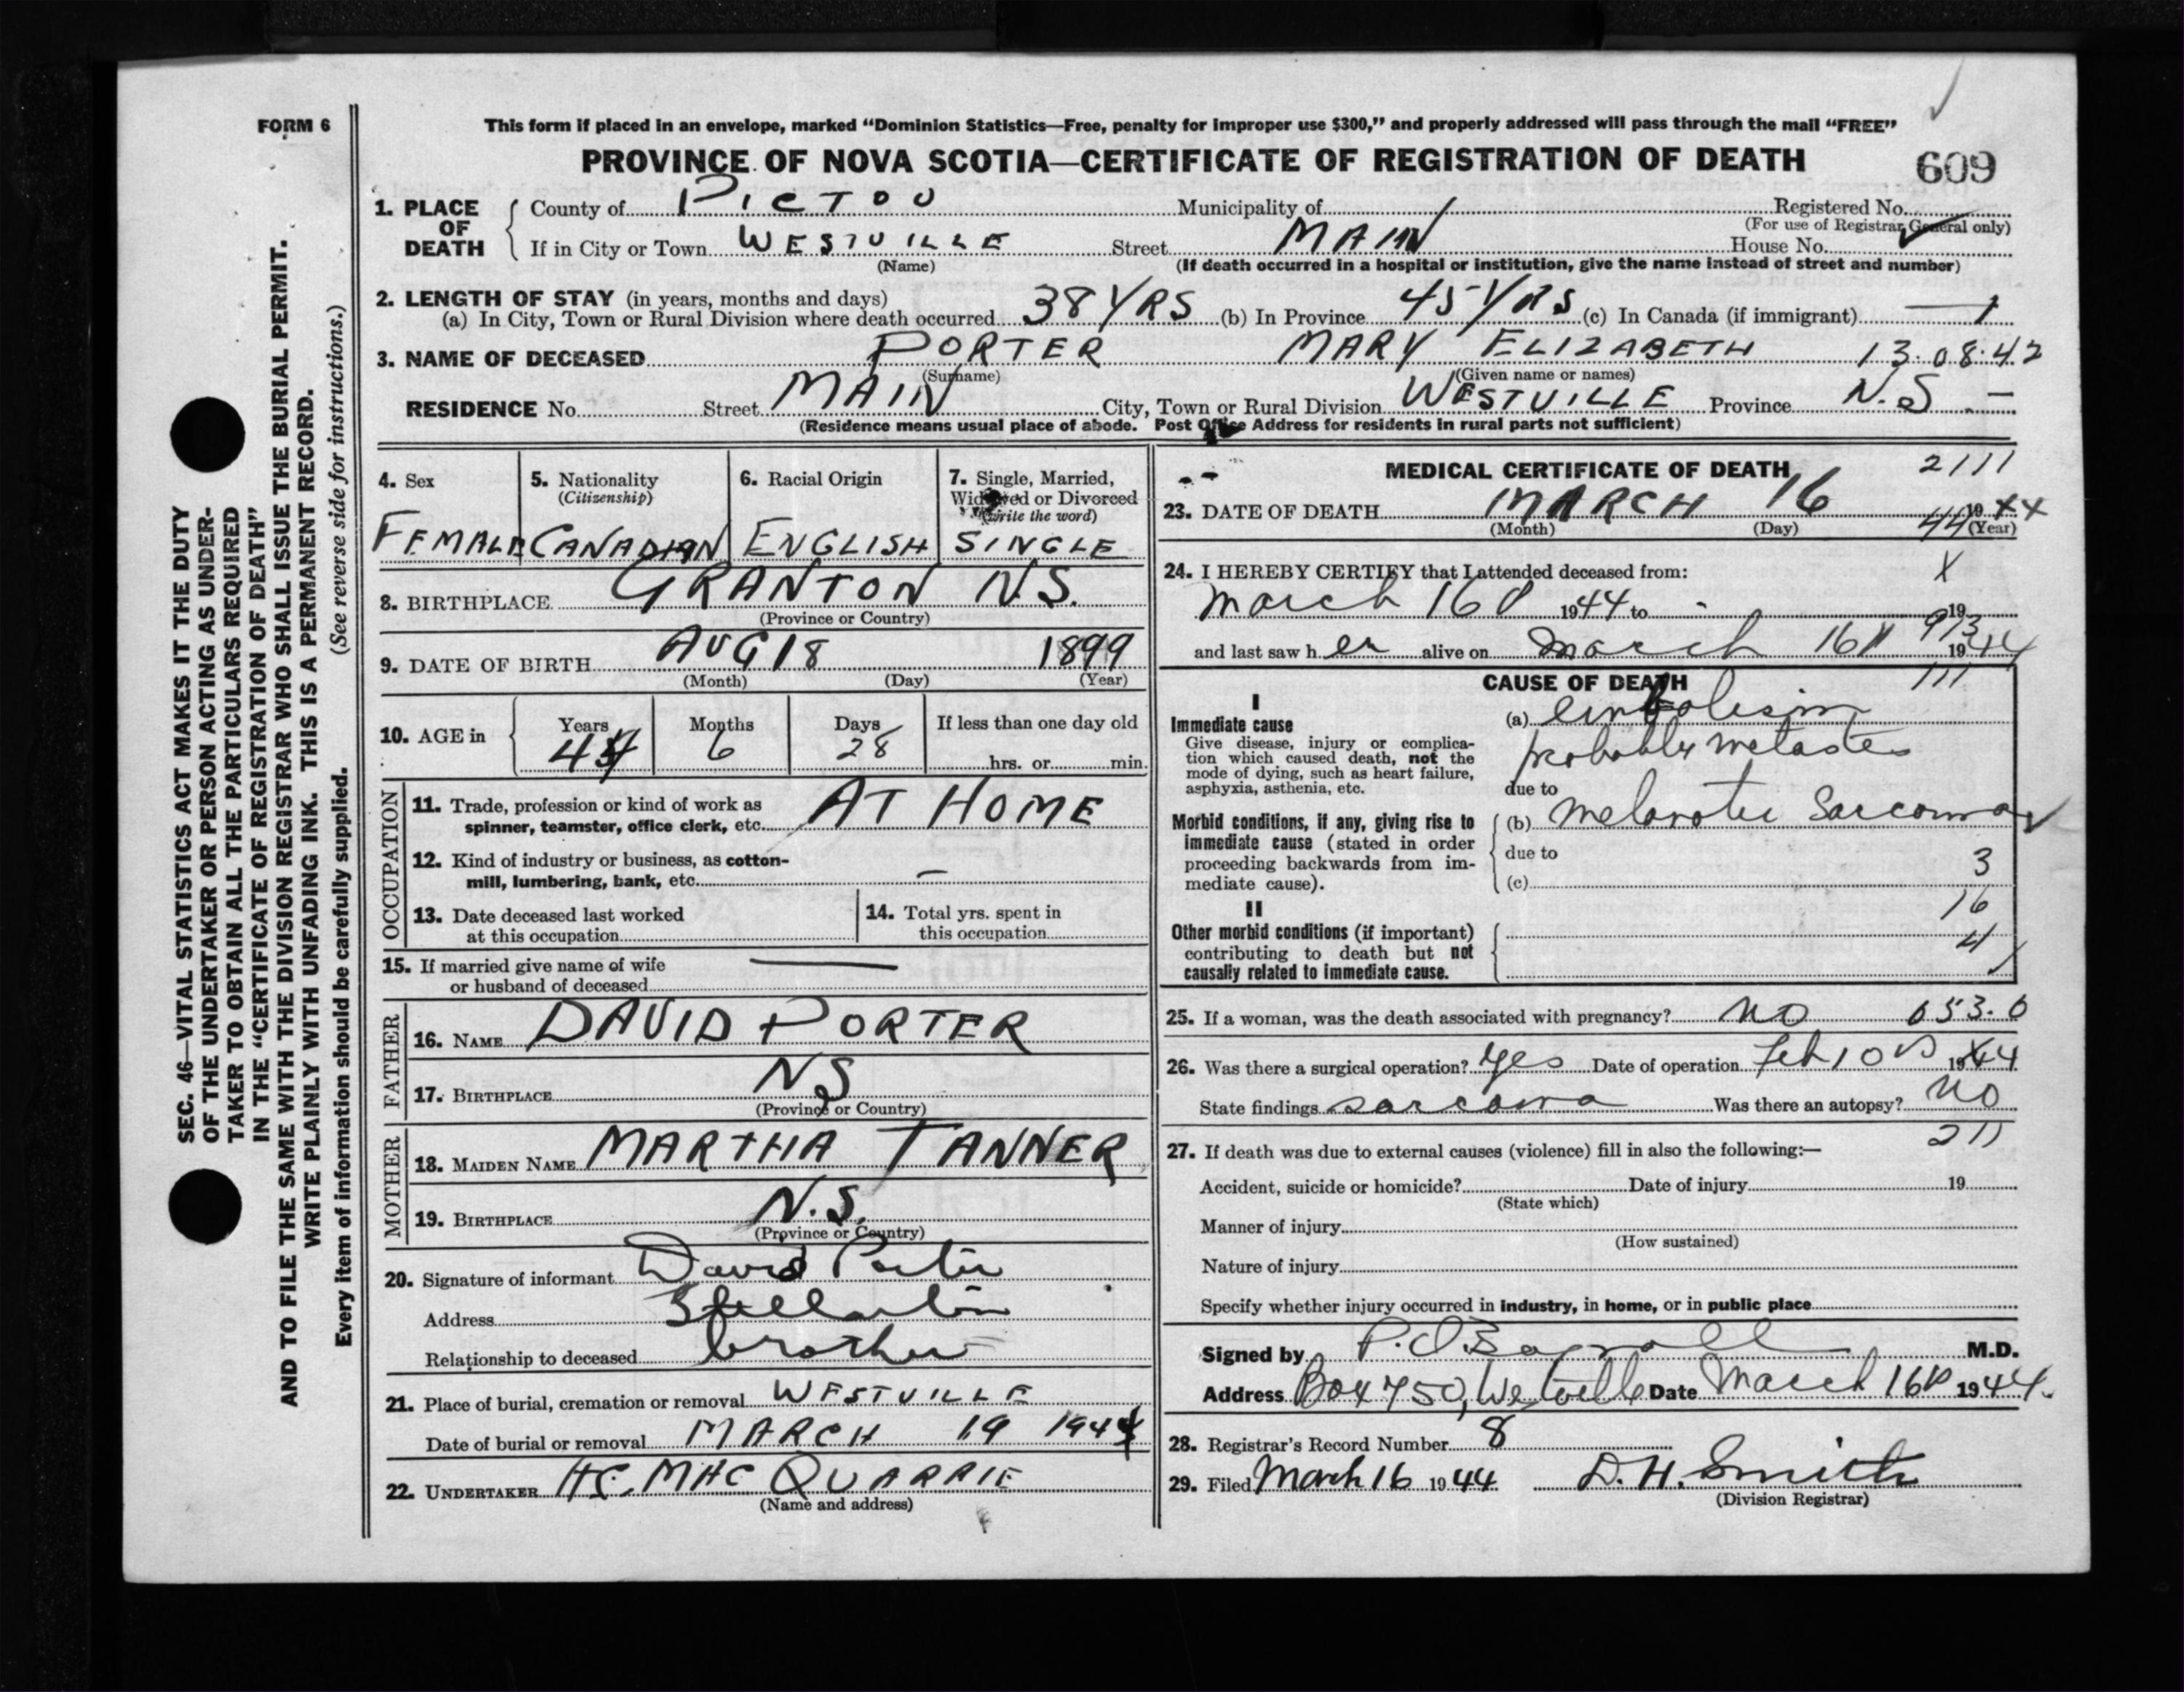 FORM 6
This form if placed in an envelope, marked “Dominion Statistics—Free, penalty for improper use $300,” and properly addressed will pass through the mail “FREE”
PROVINCE OF NOVA SCOTIA—CERTIFICATE OF REGISTRATION OF DEATH 609
1. PLACE OF DEATH County of PICTOU Municipality of Registered No.
(For use of Registrar General only)
If in City or Town WESTVILLE Street MAIN House No.
(Name) (If death occurred in a hospital or institution, give the name instead of street and number)
2. LENGTH OF STAY (in years, months and days)
(a) In City, Town or Rural Division where death occurred 38 YRS (b) In Province 45 YRS (c) In Canada (if immigrant) — 1
3. NAME OF DECEASED PORTER MARY ELIZABETH 13.08.42
(Surname) (Given name or names)
RESIDENCE No. Street MAIN City, Town or Rural Division WESTVILLE Province N.S. —
(Residence means usual place of abode. Post Office Address for residents in rural parts not sufficient)
4. Sex 5. Nationality 6. Racial Origin 7. Single, Married,
(Citizenship) Widowed or Divorced
(Write the word)
FEMALE CANADIAN ENGLISH SINGLE
8. BIRTHPLACE GRANTON N.S.
(Province or Country)
9. DATE OF BIRTH AUG 18 1899
(Month) (Day) (Year)
10. AGE in Years Months Days If less than one day old
44 6 28 hrs. or min.
OCCUPATION
11. Trade, profession or kind of work as
spinner, teamster, office clerk, etc. AT HOME
12. Kind of industry or business, as cotton-
mill, lumbering, bank, etc. —
13. Date deceased last worked
at this occupation
14. Total yrs. spent in
this occupation
15. If married give name of wife
or husband of deceased —
FATHER
16. NAME DAVID PORTER
17. BIRTHPLACE NS
(Province or Country)
MOTHER
18. MAIDEN NAME MARTHA TANNER
19. BIRTHPLACE N.S.
(Province or Country)
20. Signature of informant David Porter
Address Stellarton
Relationship to deceased brother
21. Place of burial, cremation or removal WESTVILLE
Date of burial or removal MARCH 19 1944
22. UNDERTAKER H.C. MACQUARRIE
(Name and address)
MEDICAL CERTIFICATE OF DEATH 2111
23. DATE OF DEATH MARCH 16 1944
(Month) (Day) (Year)
44
24. I HEREBY CERTIFY that I attended deceased from: X
March 16 1944 to 19
913
and last saw her alive on March 16 1944
CAUSE OF DEATH 111
I
Immediate cause (a) embolism
Give disease, injury or complica-
tion which caused death, not the
mode of dying, such as heart failure,
asphyxia, asthenia, etc.
probably metastes
due to
Morbid conditions, if any, giving rise to
immediate cause (stated in order
proceeding backwards from im-
mediate cause).
(b) Melanotic Sarcoma
due to
3
(c)
16
II
Other morbid conditions (if important)
contributing to death but not
causally related to immediate cause.
4
25. If a woman, was the death associated with pregnancy? no 053.0
26. Was there a surgical operation? yes Date of operation Feb 10 1944
State findings sarcoma Was there an autopsy? no
211
27. If death was due to external causes (violence) fill in also the following:—
Accident, suicide or homicide? Date of injury 19
(State which)
Manner of injury
(How sustained)
Nature of injury
Specify whether injury occurred in industry, in home, or in public place
Signed by M.D.
Address Box 750, Westville Date March 16 1944.
28. Registrar's Record Number 8
29. Filed March 16 1944 D.H. Smith
(Division Registrar)
SEC. 46—VITAL STATISTICS ACT MAKES IT THE DUTY
OF THE UNDERTAKER OR PERSON ACTING AS UNDER-
TAKER TO OBTAIN ALL THE PARTICULARS REQUIRED
IN THE “CERTIFICATE OF REGISTRATION OF DEATH”
AND TO FILE THE SAME WITH THE DIVISION REGISTRAR WHO SHALL ISSUE THE BURIAL PERMIT.
WRITE PLAINLY WITH UNFADING INK. THIS IS A PERMANENT RECORD.
Every item of information should be carefully supplied. (See reverse side for instructions.)